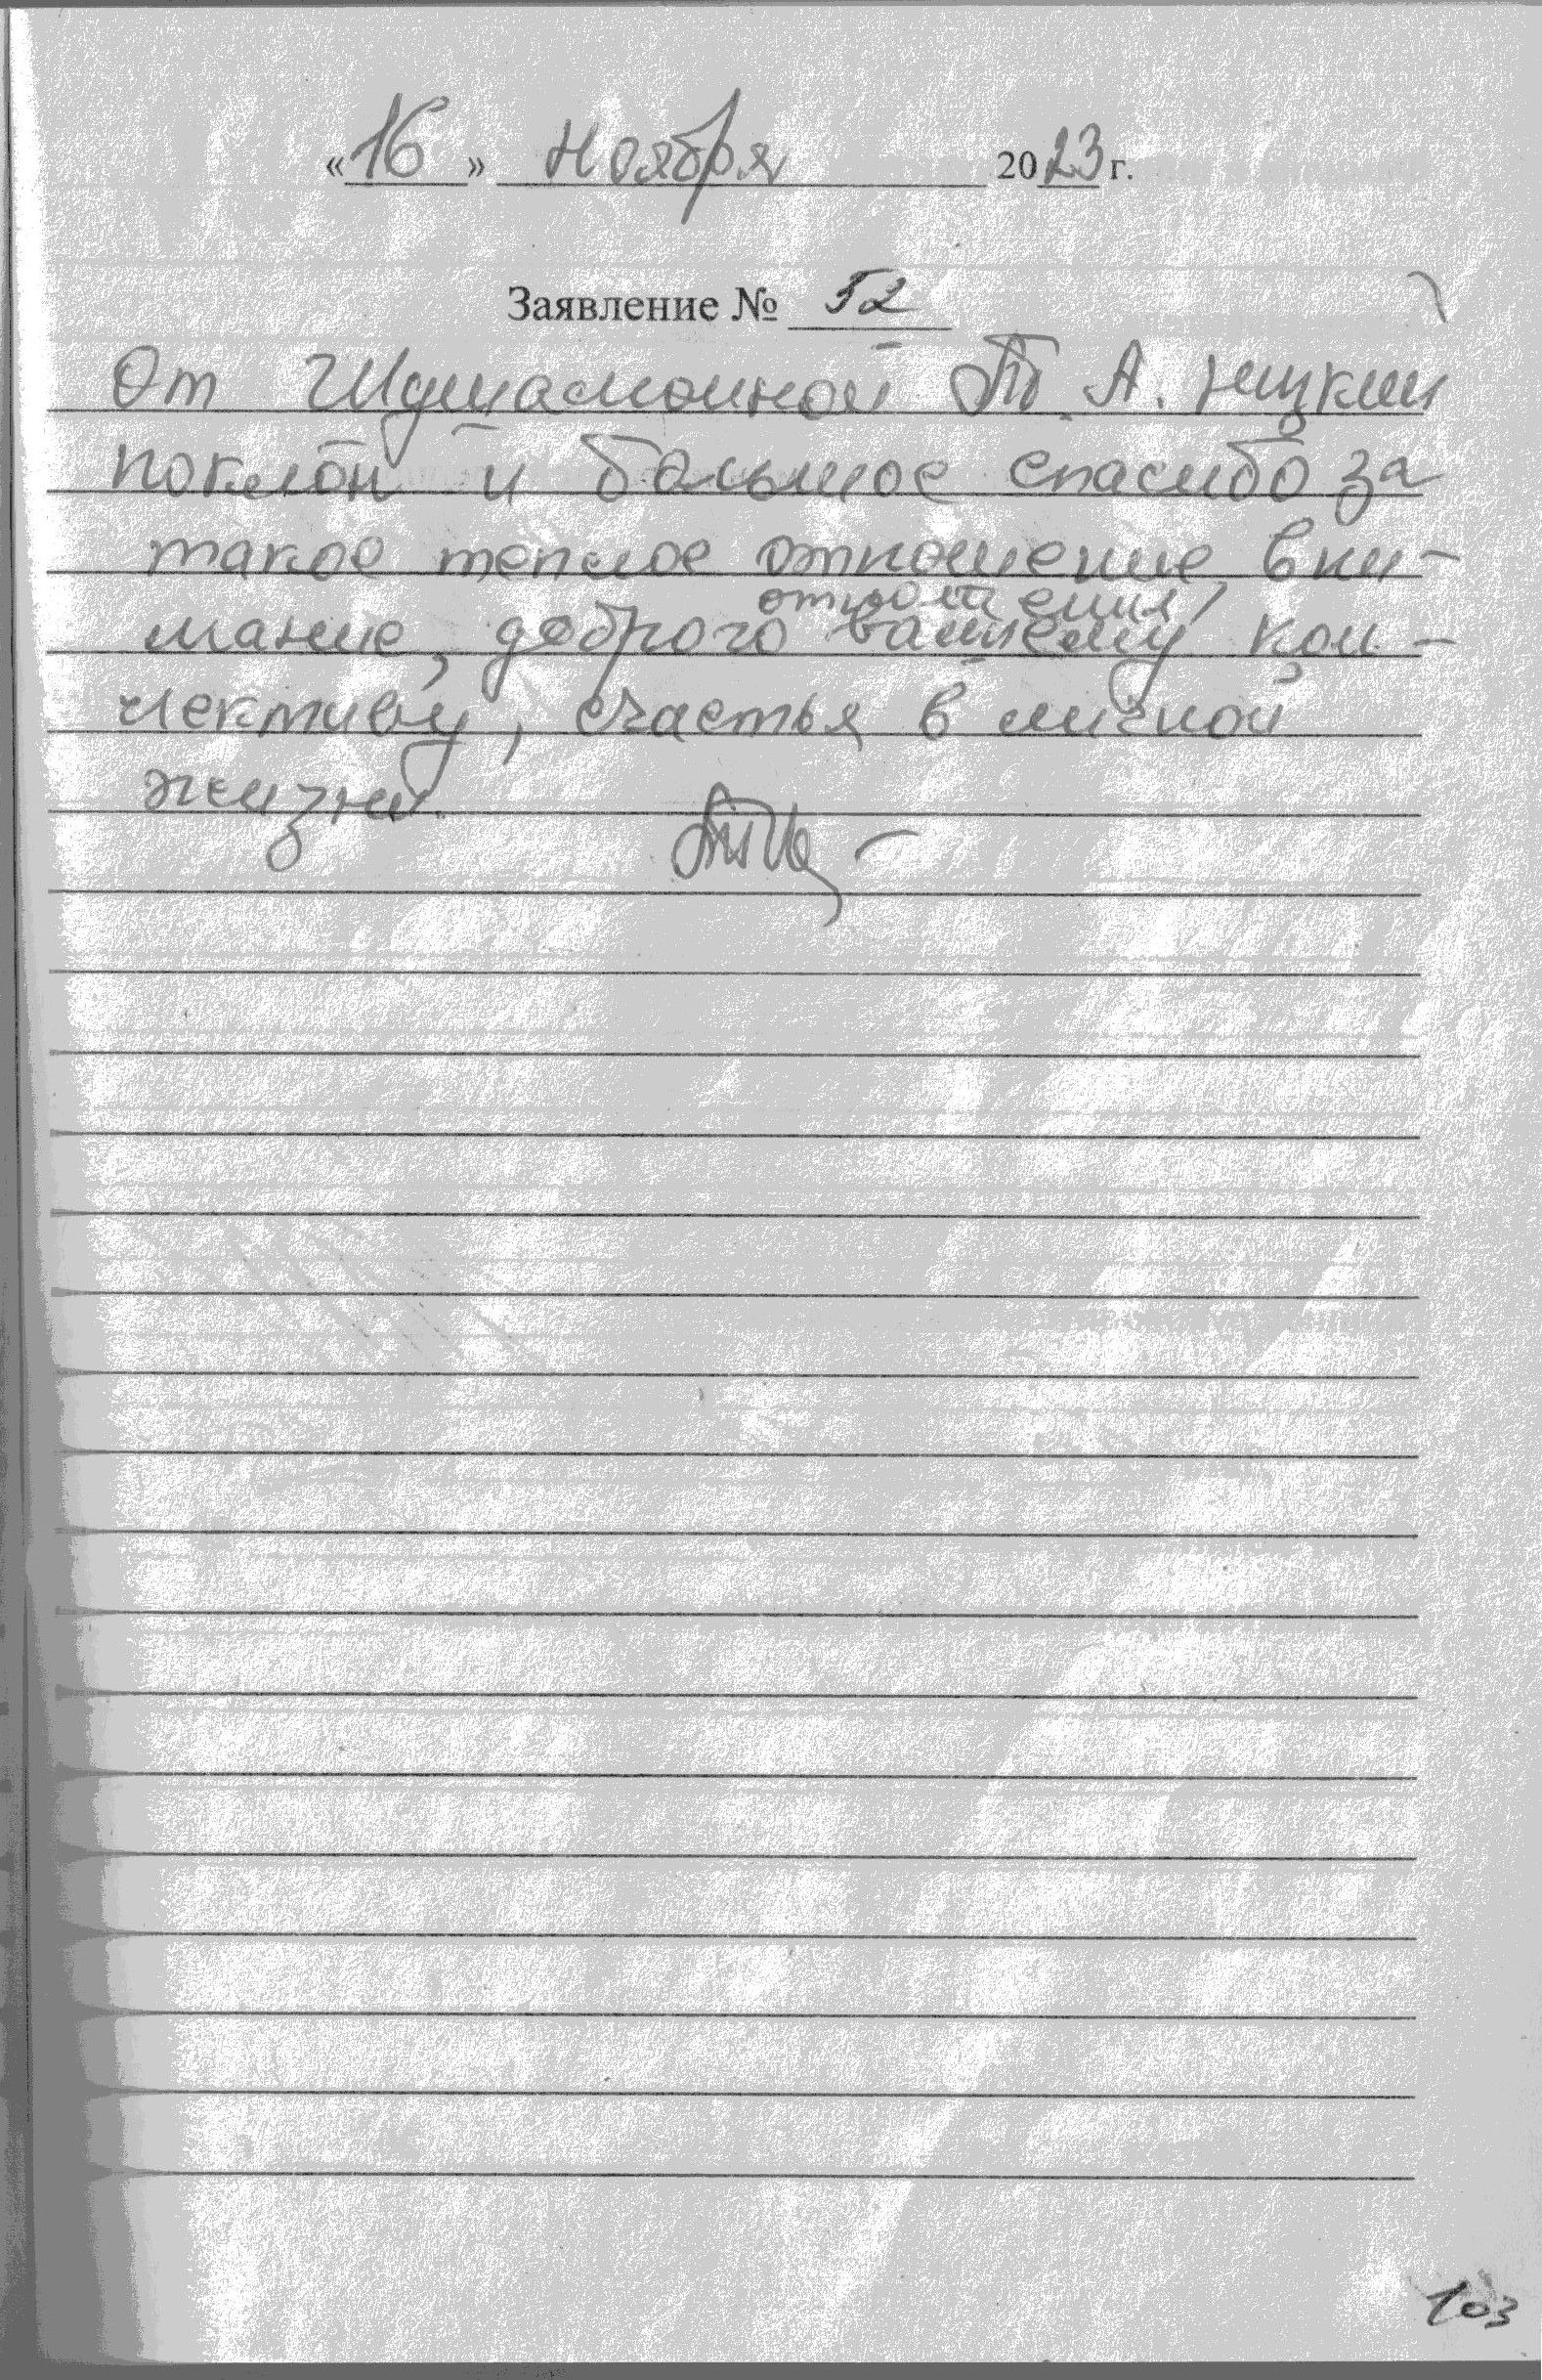 «16» Ноября 2023 г.
Заявление № 52
От Т. А. низкий
поклон и большое спасибо за
такое теплое отношение, вни-
отношения,
мание, доброго вашему кол-
лективу, счастья в личной
жизни.
103